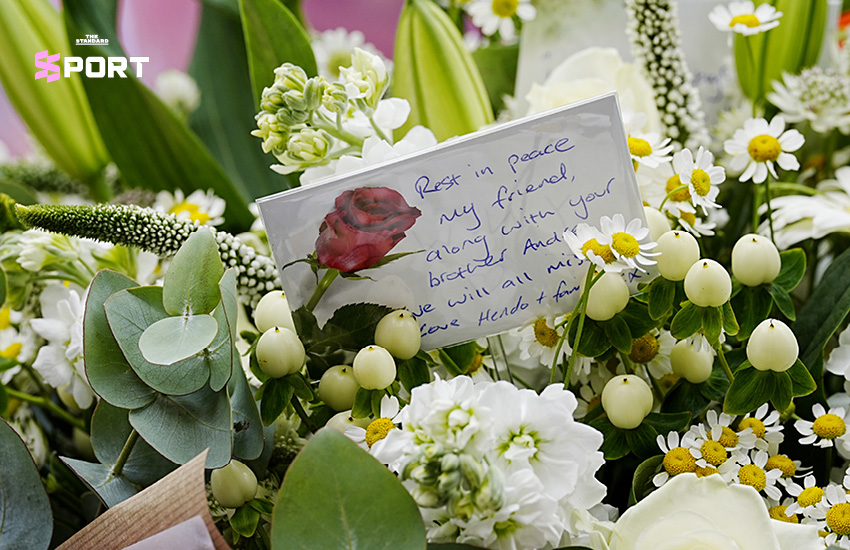 THE
STANDARD
SPORT
Rest in peace
My friend,
along with your
brother
we will all miss
Love Hendo + fam